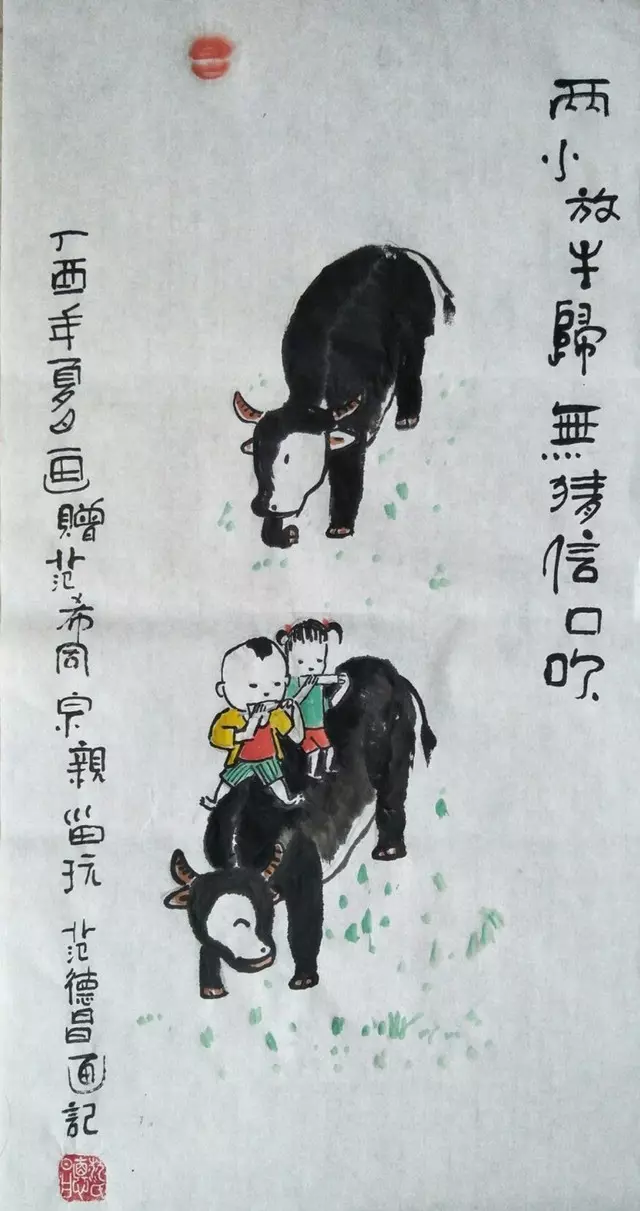 两小放牛歸無猜信口吹
丁酉年夏日画贈范希同宗親留玩范德昌画記